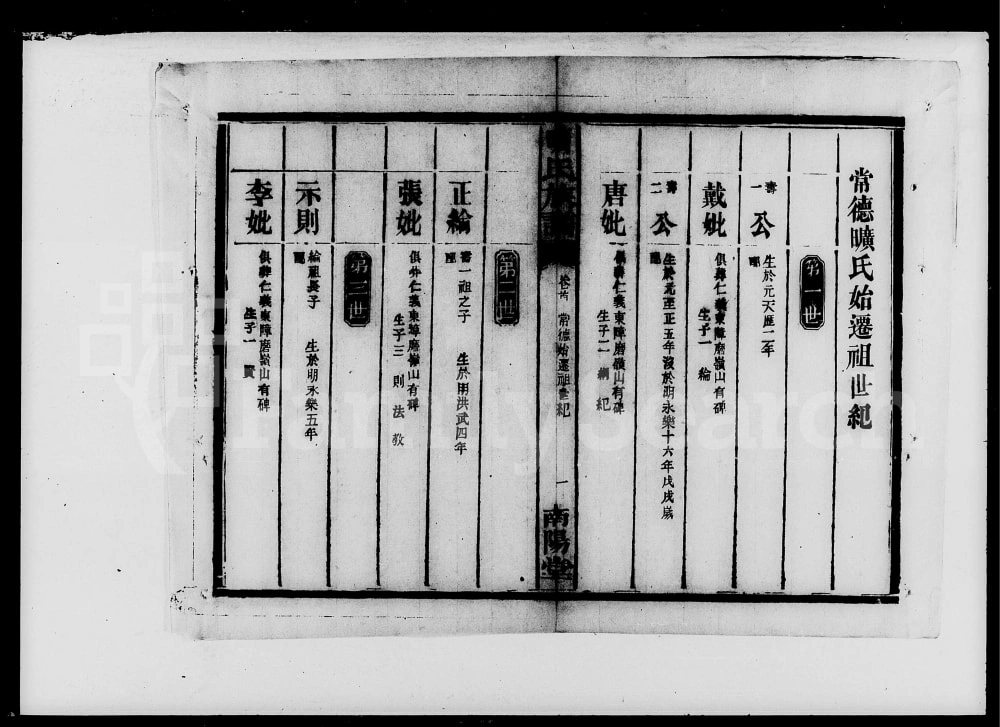 常德曠氏始遷祖世紀
第一世
壽一公 生於元天歷二年
戴妣 俱葬仁義東障磨嶺山有碑
生子一 綸
壽二公 生於元至正五年歿於明永樂十六年戊戌歲
唐妣 俱葬仁義東障磨嶺山有碑
生子二 綱 紀
氏族譜 卷首 常德始遷祖世紀 一 南陽堂
第二世
正綸 壽一祖之子 生於明洪武四年
張妣 俱葬仁義東障磨嶺山有碑
生子三 則 法 敎
第三世
示則 綸祖長子 生於明永樂五年
李妣 俱葬仁義東障磨嶺山有碑
生子一 賢
FamilySearch